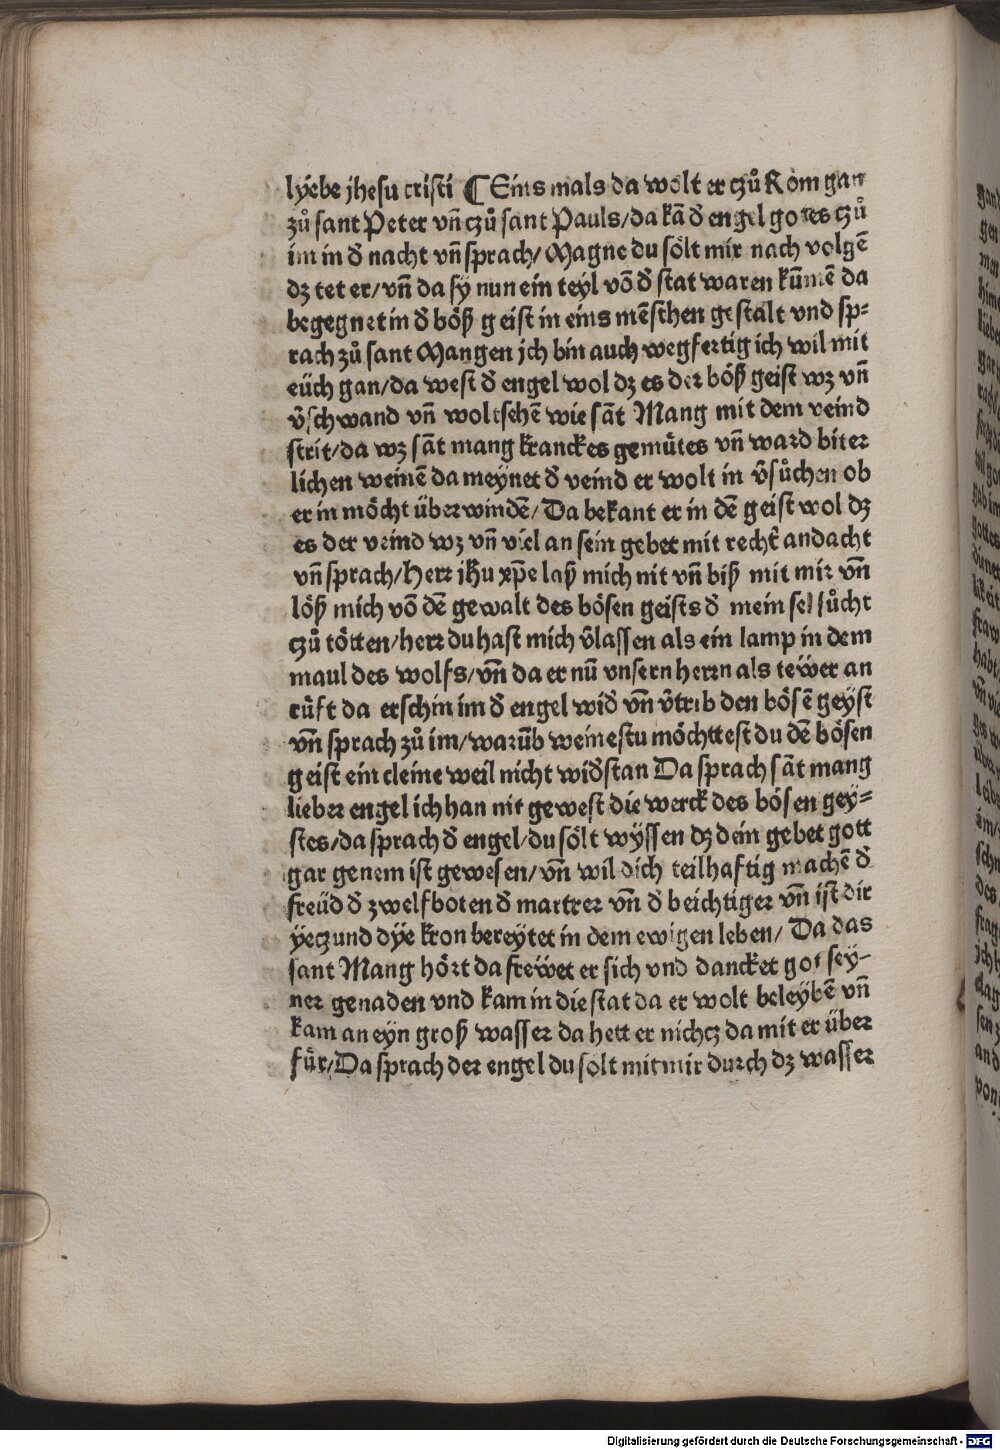 lyebe jhesu cristi ¶ Eins mals da wolt er czů Rom gan
zů sant Peter vn̄ czů sant Pauls/da kā d̕ engel gotes czů
im in d̕ nacht vn̄ sprach/Magne du sölt mir nach volgē
dz tet er/vn̄ da sy nun ein teyl vō d̕ stat waren kūmē da
begegnet in d̕ böß geist in eins mēschen gestalt vnd sp⸗
rach zů sant Mangen jch bin auch wegfertig ich wil mit
eüch gan/da west d̕ engel wol dz es der böß geist wz vn̄
v̕schwand vn̄ wolt sehē wie sāt Mang mit dem veind
strit/da wz sāt mang kranckes gemütes vn̄ ward biter
lichen weinē da meynet d̕ veind er wolt in v̕sůchen ob
er in möcht überwindē/Da bekant er in dē geist wol dz
es der veind wz vn̄ viel an sein gebet mit recht̕ andacht
vn̄ sprach/herr jh̄u xp̄e laß mich nit vn̄ biß mit mir vn̄
löß mich vō dē gewalt des bösen geists d̕ mein sel sůcht
czů tötten/herr du hast mich v̕lassen als ein lamp in dem
maul des wolfs/vn̄ da er nū vnsern herrn als teẅer an
rüft da erschin im d̕ engel wid̕ vn̄ v̕trib den bösē geyst
vn̄ sprach zů im/warūb weinestu möchttest du dē bösen
geist ein cleine weil nicht wid̕stan Da sprach sāt mang
lieber engel ich han nit gewest die werck des bösen gey⸗
stes/da sprach d̕ engel/du sölt wyssen dz dein gebet gott
gar genem ist gewesen/vn̄ wil dich teilhaftig machē d̕
freüd d̕ zwelfboten d̕ martrer vn̄ d̕ beichtiger vn̄ ist dir
yeczund dye kron bereytet in dem ewigen leben/Da das
sant Mang hört da freẅet er sich vnd dancket got sey⸗
ner genaden vnd kam in die stat da er wolt beleybē vn̄
kam an eyn groß wasser da hett er nichcz da mit er über
für/Da sprach der engel du solt mit mir durch dz wasser
Digitalisierung gefördert durch die Deutsche Forschungsgemeinschaft - DFG